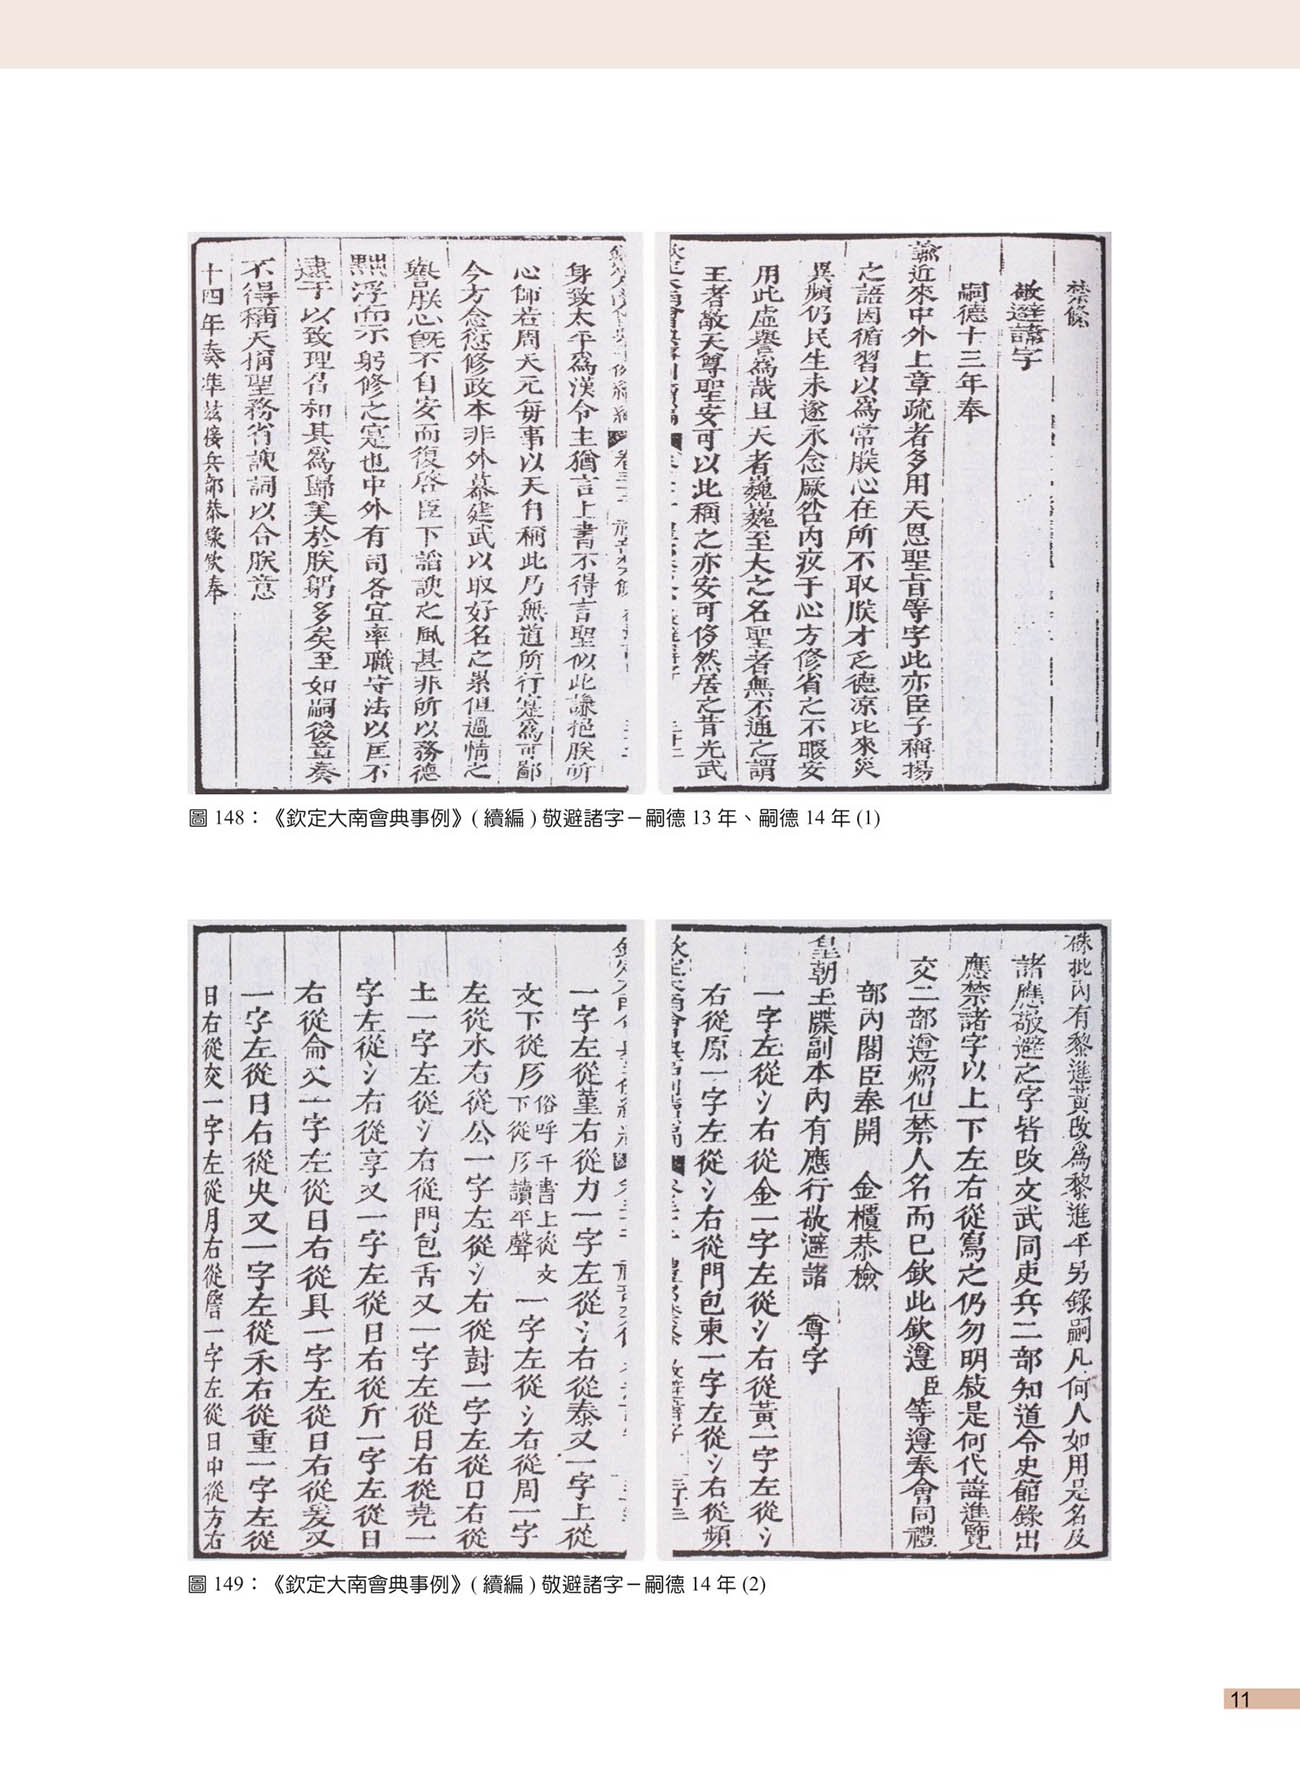 禁條
敬避諱字
嗣德十三年奉
諭近來中外上章疏者多用天恩聖旨等字此亦臣子稱揚
之語因循習以爲常朕心在所不取朕才乏德凉比來災
異頻仍民生未遂永念厥咎內疚于心方修省之不暇安
用此虛譽爲哉且天者巍巍至大之名聖者無不通之謂
王者敬天尊聖安可以此稱之亦安可侈然居之昔光武
身致太平爲漢令主猶言上書不得言聖似此謙挹朕所
心師若周天元每事以天自稱此乃無道所行寔爲可鄙
今方念愆修政本非外慕建武以取好名之累但過情之
譽朕心旣不自安而復啓臣下諂諛之風甚非所以務德
黜浮而示躬修之寔也中外有司各宜率職守法以匡不
逮于以致理召和其爲歸美於朕躬多矣至如嗣後章奏
不得稱天稱聖務省諛詞以合朕意
十四年奏準玆接兵部恭錄欽奉
圖 148：《欽定大南會典事例》( 續編 ) 敬避諸字－嗣德 13 年、嗣德 14 年 (1)
硃批內有黎進黃改爲黎進平另錄嗣凡何人如用是名及
諸應敬避之字皆改文武同吏兵二部知道令史館錄出
應禁諸字以上下左右從寫之仍勿明敍是何代諱進覽
交二部遵炤但禁人名而已欽此欽遵臣等遵奉會同禮
部內閣臣奉開 金櫃恭檢
皇朝玉牒副本內有應行敬避諸 尊字
一字左從氵右從金一字左從氵右從黃一字左從氵
右從原一字左從氵右從門包柬一字左從氵右從頻
一字左從堇右從力一字左從氵右從泰又一字上從
文下從厉俗呼千書上從文下從厉讀平聲一字左從氵右從周一字
左從水右從公一字左從氵右從尌一字左從口右從
土一字左從氵右從門包舌又一字左從日右從堯一
字左從氵右從享又一字左從日右從斤一字左從日
右從侖又一字左從日右從具一字左從日右從爰又
一字左從日右從央又一字左從禾右從重一字左從
日右從交一字左從月右從詹一字左從日中從方右
圖 149：《欽定大南會典事例》( 續編 ) 敬避諸字－嗣德 14 年 (2)
11